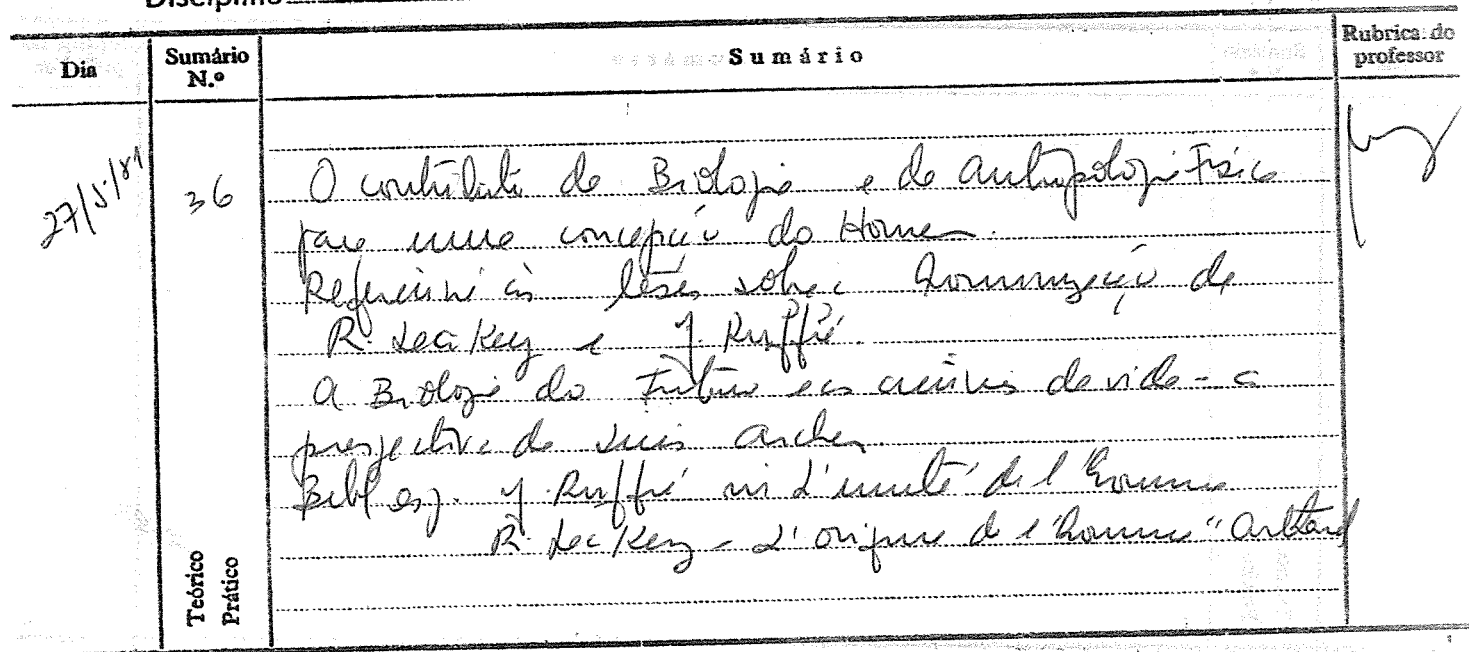 Disciplina
Dia
Sumário N.º
Sumário
Rubrica do professor
27/5/81
36
O contributo da Biologia e da Antropologia Física
para uma concepção do Homem.
Referência às teses sobre a hominização de
R. Leakey e J. Ruffié.
A Biologia do Futuro e as ciências da vida - a
perspectiva de Luís Archer
Bibl esp. J. Ruffié in L'unité de l'homme
R. Leakey - L'origine de l'homme"
Teórico
Prático